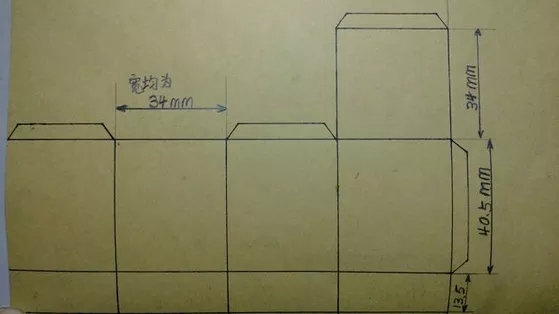 宽均为
34mm
34mm
40.5mm
13.5